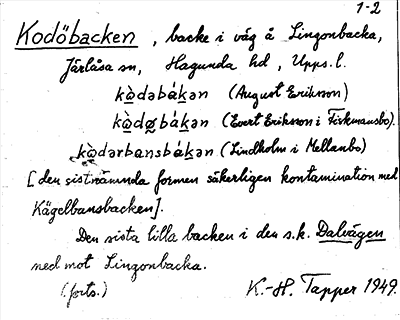 1-2
Kodöbacken, backe i väg å Lingonbacka,
Järlåsa sn, Hagunda hd, Upps. l.
kòdəbákən (August Erikson)
kòdøbákən (Evert Erikson i Fiskmansbo).
kòdərbansbákən (Lindholm i Mellanbo)
[den sistnämnda formen säkerligen kontamination med
Kägelbansbacken].
Den sista lilla backen i den s.k. Dalvägen
ned mot Lingonbacka.
(forts.) K.-H. Tapper 1949.